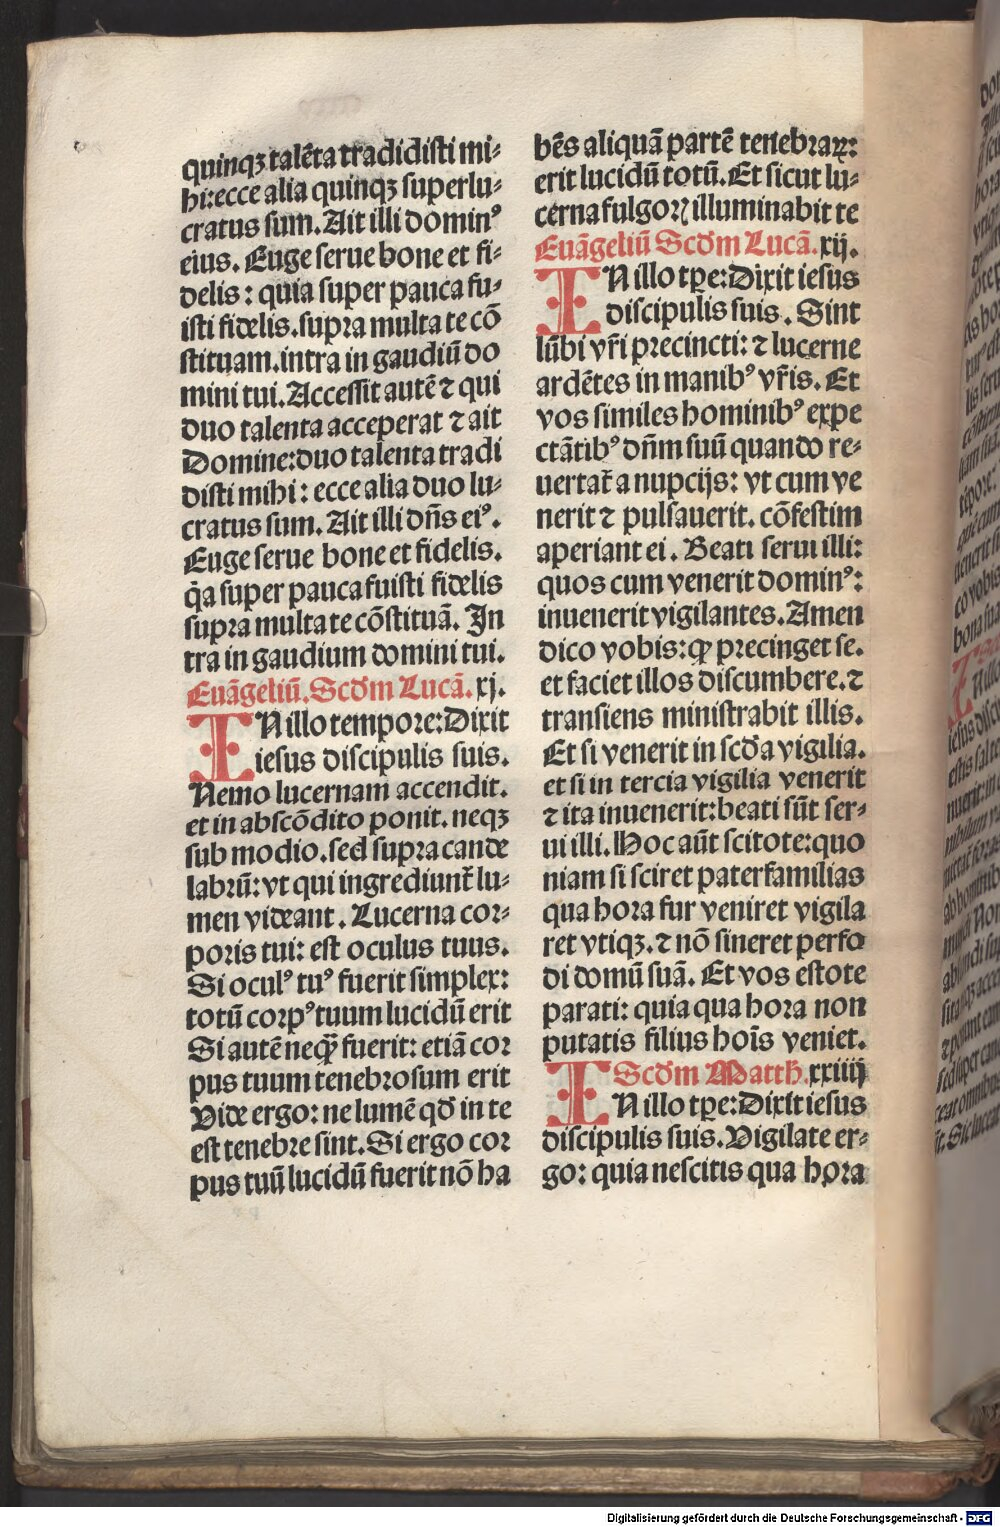 quinqꝫ talēta tradidisti mi⸗
hi:ecce alia quinqꝫ superlu⸗
cratus sum. Ait illi dominꝰ
eius. Euge serue bone et fi⸗
delis : quia super pauca fu⸗
isti fidelis. supra multa te cō
stituam. intra in gaudiū do
mini tui. Accessit autē ⁊ qui
duo talenta acceperat ⁊ ait
Domine:duo talenta tradi
disti mihi : ecce alia duo lu⸗
cratus sum. Ait illi dn̄s eiꝰ.
Euge serue bone et fidelis.
q̄a super pauca fuisti fidelis
supra multa te cōstituā. In
tra in gaudium domini tui.
Euāgeliū. Scd̄m Lucā. xj.
IN illo tempore: Dixit
iesus discipulis suis.
Nemo lucernam accendit.
et in abscōdito ponit. neqꝫ
sub modio. sed supra cande
labrū: vt qui ingrediunt̄ lu⸗
men videant . Lucerna cor⸗
poris tui: est oculus tuus.
Si oculꝰ tuꝰ fuerit simplex:
totū corpꝰ tuum lucidū erit
Si autē neq̄ꝫ fuerit: etiā cor
pus tuum tenebrosum erit
Vide ergo: ne lumē qd̄ in te
est tenebre sint. Si ergo cor
pus tuū lucidū fuerit nō ha
bēs aliquā partē tenebraꝝ:
erit lucidū totū. Et sicut lu⸗
cerna fulgorꝭ illuminabit te
Euāgeliū Scd̄m Lucā. xij.
IN illo tp̄e: Dixit iesus
discipulis suis. Sint
lūbi vr̄i precincti: ⁊ lucerne
ardētes in manibꝰ vr̄is. Et
vos similes hominibꝰ expe
ctātibꝰ dn̄m suū quando re⸗
uertat̄ a nupcijs: vt cum ve
nerit ⁊ pulsauerit. cōfestim
aperiant ei . Beati serui illi:
quos cum venerit dominꝰ:
inuenerit vigilantes. Amen
dico vobis: ꝙ precinget se.
et faciet illos discumbere. ⁊
transiens ministrabit illis.
Et si venerit in scd̄a vigilia.
et si in tercia vigilia venerit
⁊ ita inuenerit: beati sūt ser⸗
ui illi. Hoc aūt scitote: quo
niam si sciret paterfamilias
qua hora fur veniret vigila
ret vtiqꝫ. ⁊ nō sineret perfo
di domū suā. Et vos estote
parati: quia qua hora non
putatis filius hoīs veniet.
Scd̄m Matth. xxiiij
IN illo tp̄e: Dixit iesus
discipulis suis. Vigilate er⸗
go: quia nescitis qua hora
Digitalisierung gefördert durch die Deutsche Forschungsgemeinschaft - DFG